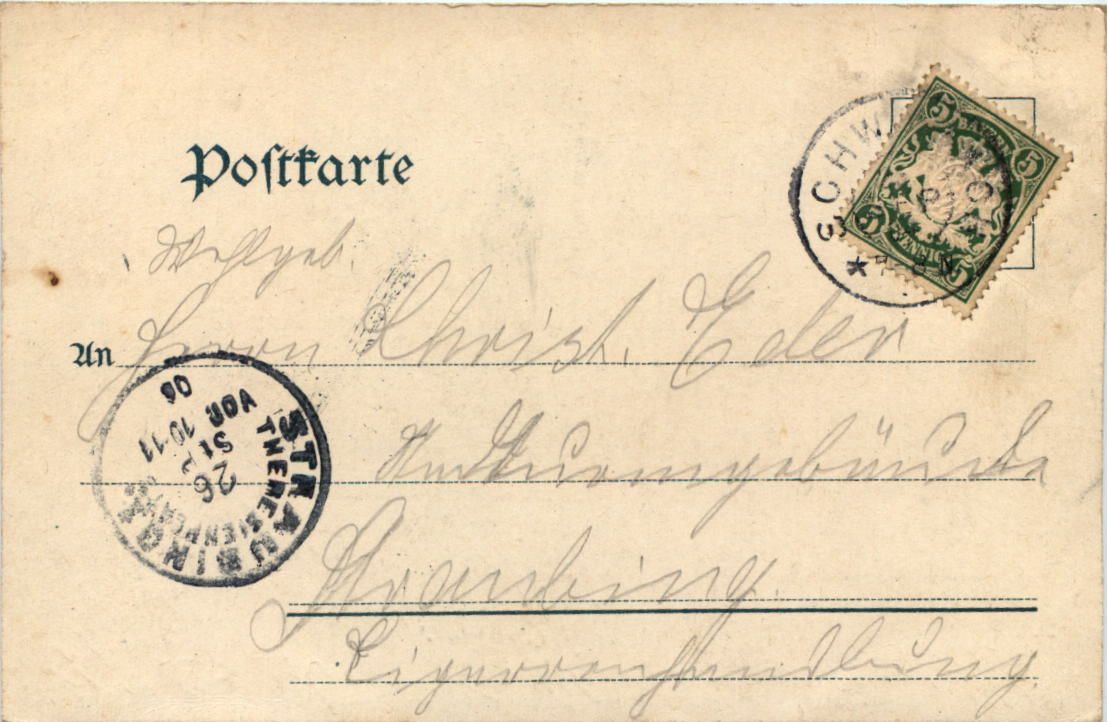 Postkarte
Wohlgeb.
An Herrn Christ. Eder
Stadtturmgebäude
Straubing.
Cigarrenhandlung.
BAYERN
5 5
5 5
PFENNIG
SCHW
STRAUBING
THERESIENPLATZ
26
10-11
VOR
00